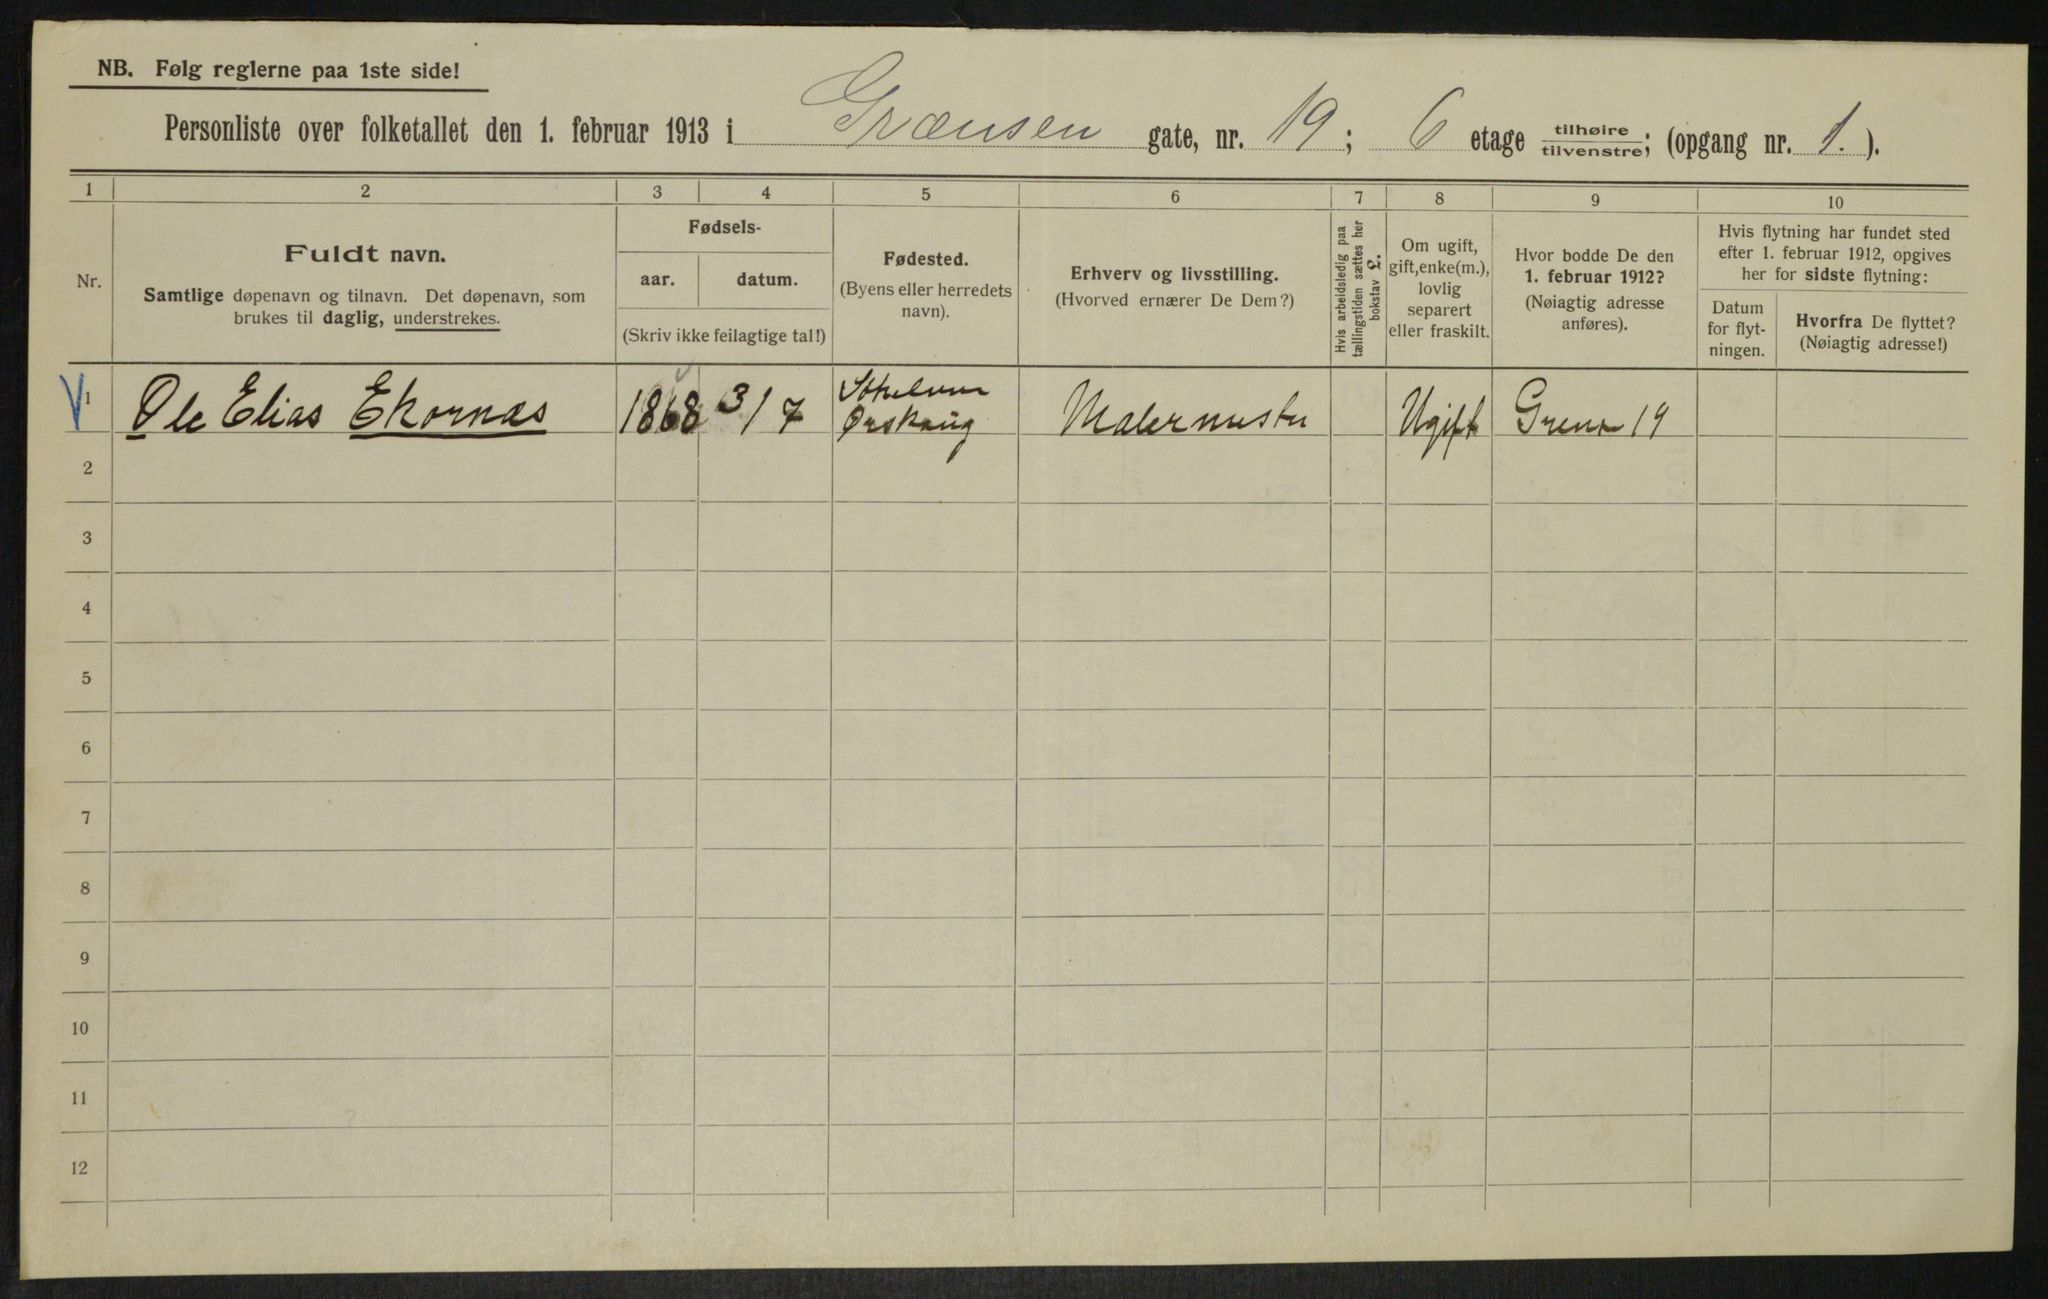 NB. Følg reglerne paa 1ste side!
Personliste over folketallet den 1. februar 1913 i Grænsen gate, nr. 19; 6 etage tilhøire/tilvenstre; (opgang nr. 1.).
1 2 3 4 5 6 7 8 9 10
Nr.
Fuldt navn.
Samtlige døpenavn og tilnavn. Det døpenavn, som
brukes til daglig, understrekes.
Fødsels-
aar. datum.
(Skriv ikke feilagtige tal!)
Fødested.
(Byens eller herredets
navn).
Erhverv og livsstilling.
(Hvorved ernærer De Dem?)
Hvis arbeidsledig paa
tællingstiden sættes her
bokstav L.
Om ugift,
gift, enke(m.),
lovlig
separert
eller fraskilt.
Hvor bodde De den
1. februar 1912?
(Nøiagtig adresse
anføres).
Hvis flytning har fundet sted
efter 1. februar 1912, opgives
her for sidste flytning:
Datum
for flyt-
ningen.
Hvorfra De flyttet?
(Nøiagtig adresse!)
1 Ole Elias Ekornæs 1868 3/7 Ørskoug Malermester Ugift 19
2
3
4
5
6
7
8
9
10
11
12